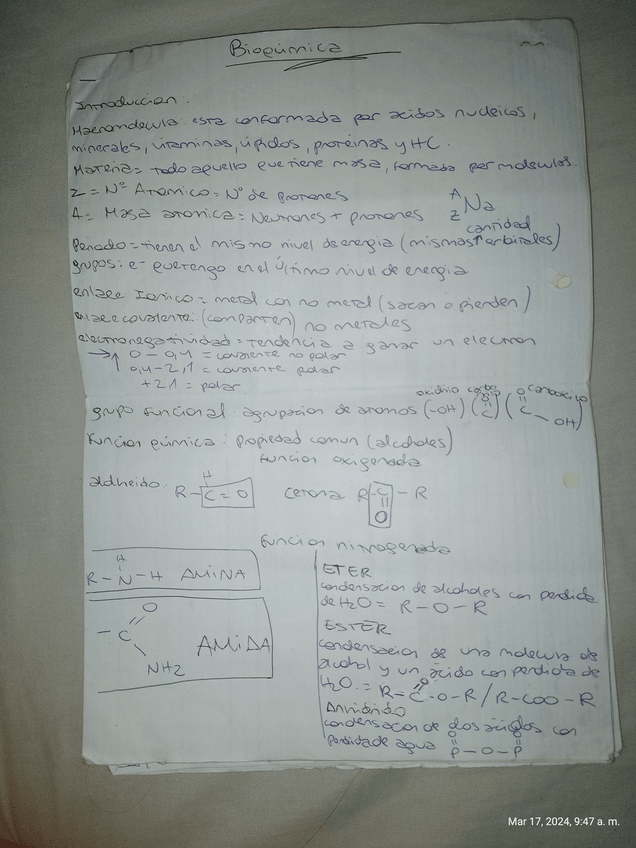 Bioquímica
Introduccion:
Macromolecula: esta conformada por acidos nucleicos,
minerales, vitaminas, lipidos, proteinas y HC.
Materia = todo aquello que tiene masa, formada por moleculas
Z = Nº Atomico = Nº de protones
A = Masa atomica = Neutrones + protones
A
Z Na
cantidad
Periodo = tienen el mismo nivel de energia (mismas orbitales)
grupos: e- que tengo en el último nivel de energia
enlace Ionico = metal con no metal (sacan o pierden)
enlace covalente: (comparten) no metales
electronegatividad = tendencia a ganar un electron
→↑ 0-0,4 = covalente no polar
0,4-2,1 = covalente polar
+2,1 = polar
grupo funcional: agrupacion de atomos (-OH) (O=C) (O=C-OH)
oxidrilo carboxilo
Funcion química: propiedad comun (alcoholes)
Funcion oxigenada
aldheido: R-C=O
H
cetona R-C-R
O
Funcion nitrogenada
H
R-N-H AMINA
O
-C AMiDA
NH2
ETER
condensacion de alcoholes con perdida
de H2O = R-O-R
ESTER
condensacion de una molecula de
alcohol y un ácido con perdida de
H2O. = R-C-O-R / R-COO-R
O
Anhidrido
condensacion de dos ácidos con
perdida de agua P-O-P
O O
Mar 17, 2024, 9:47 a. m.